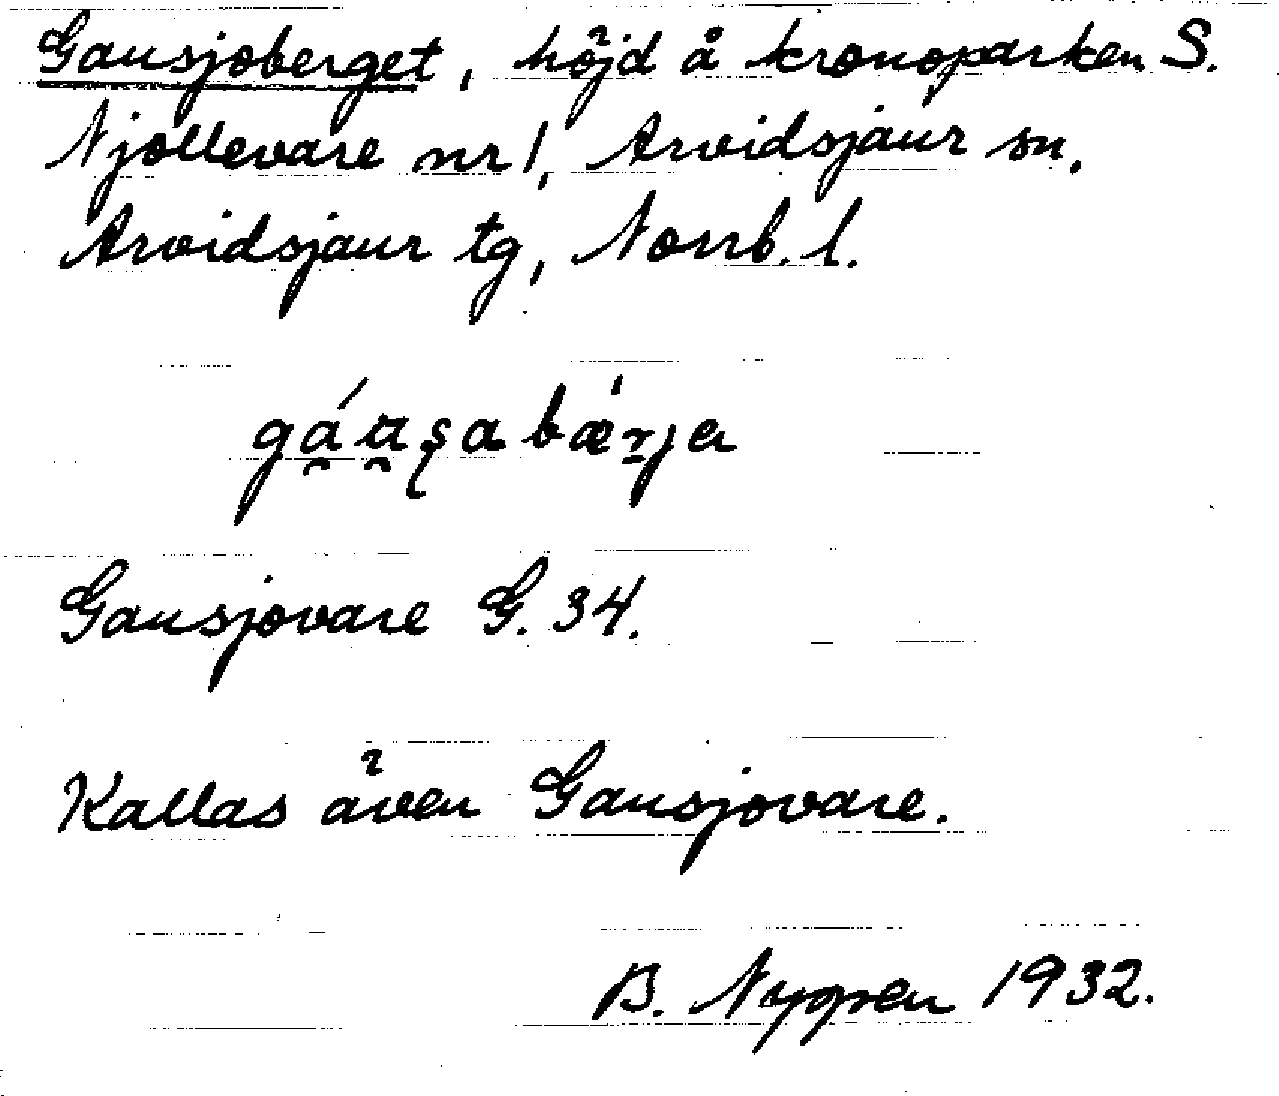 Gausjoberget, höjd å kronoparken S.
Njallevare nr 1, Arvidsjaur sn.
Arvidsjaur tg, Norrb. l.
Gausjovare G. 34.
Kallas även Gausjovare.
B. Nygren 1932.